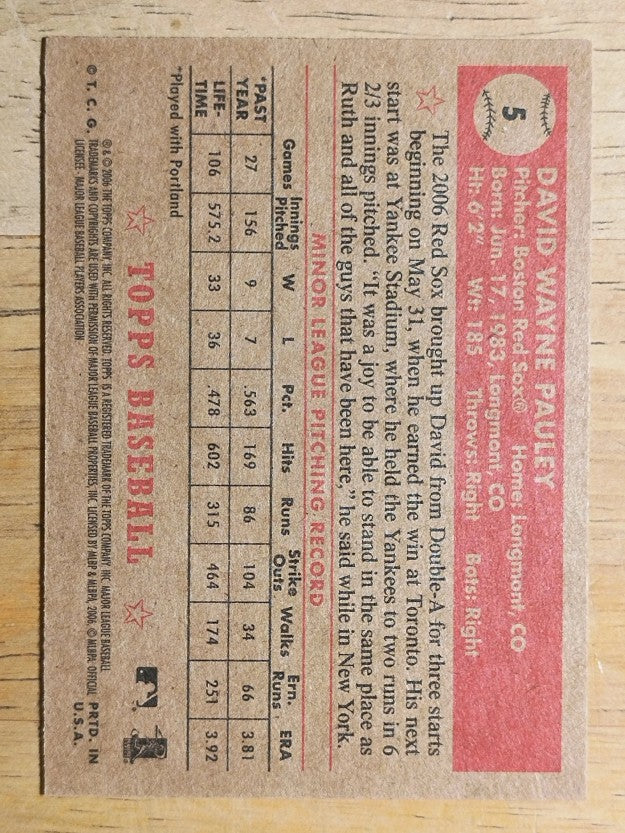 5
DAVID WAYNE PAULEY
Pitcher: Boston Red Sox® Home: Longmont, CO
Born: Jun. 17, 1983, Longmont, CO
Ht: 6'2" Wt: 185 Throws: Right Bats: Right
The 2006 Red Sox brought up David from Double-A for three starts
beginning on May 31, when he earned the win at Toronto. His next
start was at Yankee Stadium, where he held the Yankees to two runs in 6
2/3 innings pitched. "It was a joy to be able to stand in the same place as
Ruth and all of the guys that have been here," he said while in New York.
MINOR LEAGUE PITCHING RECORD
Games Innings Pitched W L Pct. Hits Runs Strike Outs Walks Ern. Runs ERA
*PAST YEAR 27 156 9 7 .563 169 86 104 34 66 3.81
LIFE-TIME 106 575.2 33 36 .478 602 315 464 174 251 3.92
*Played with Portland
TOPPS BASEBALL
® & © 2006 THE TOPPS COMPANY, INC. ALL RIGHTS RESERVED. TOPPS IS A REGISTERED TRADEMARK OF THE TOPPS COMPANY, INC. MAJOR LEAGUE BASEBALL
© T. C. G. TRADEMARKS AND COPYRIGHTS ARE USED WITH PERMISSION OF MAJOR LEAGUE BASEBALL PROPERTIES, INC. LICENSED BY MLBP & MLBPI, 2006. © MLBPA OFFICIAL PRTD. IN
LICENSEE - MAJOR LEAGUE BASEBALL PLAYERS ASSOCIATION. U.S.A.